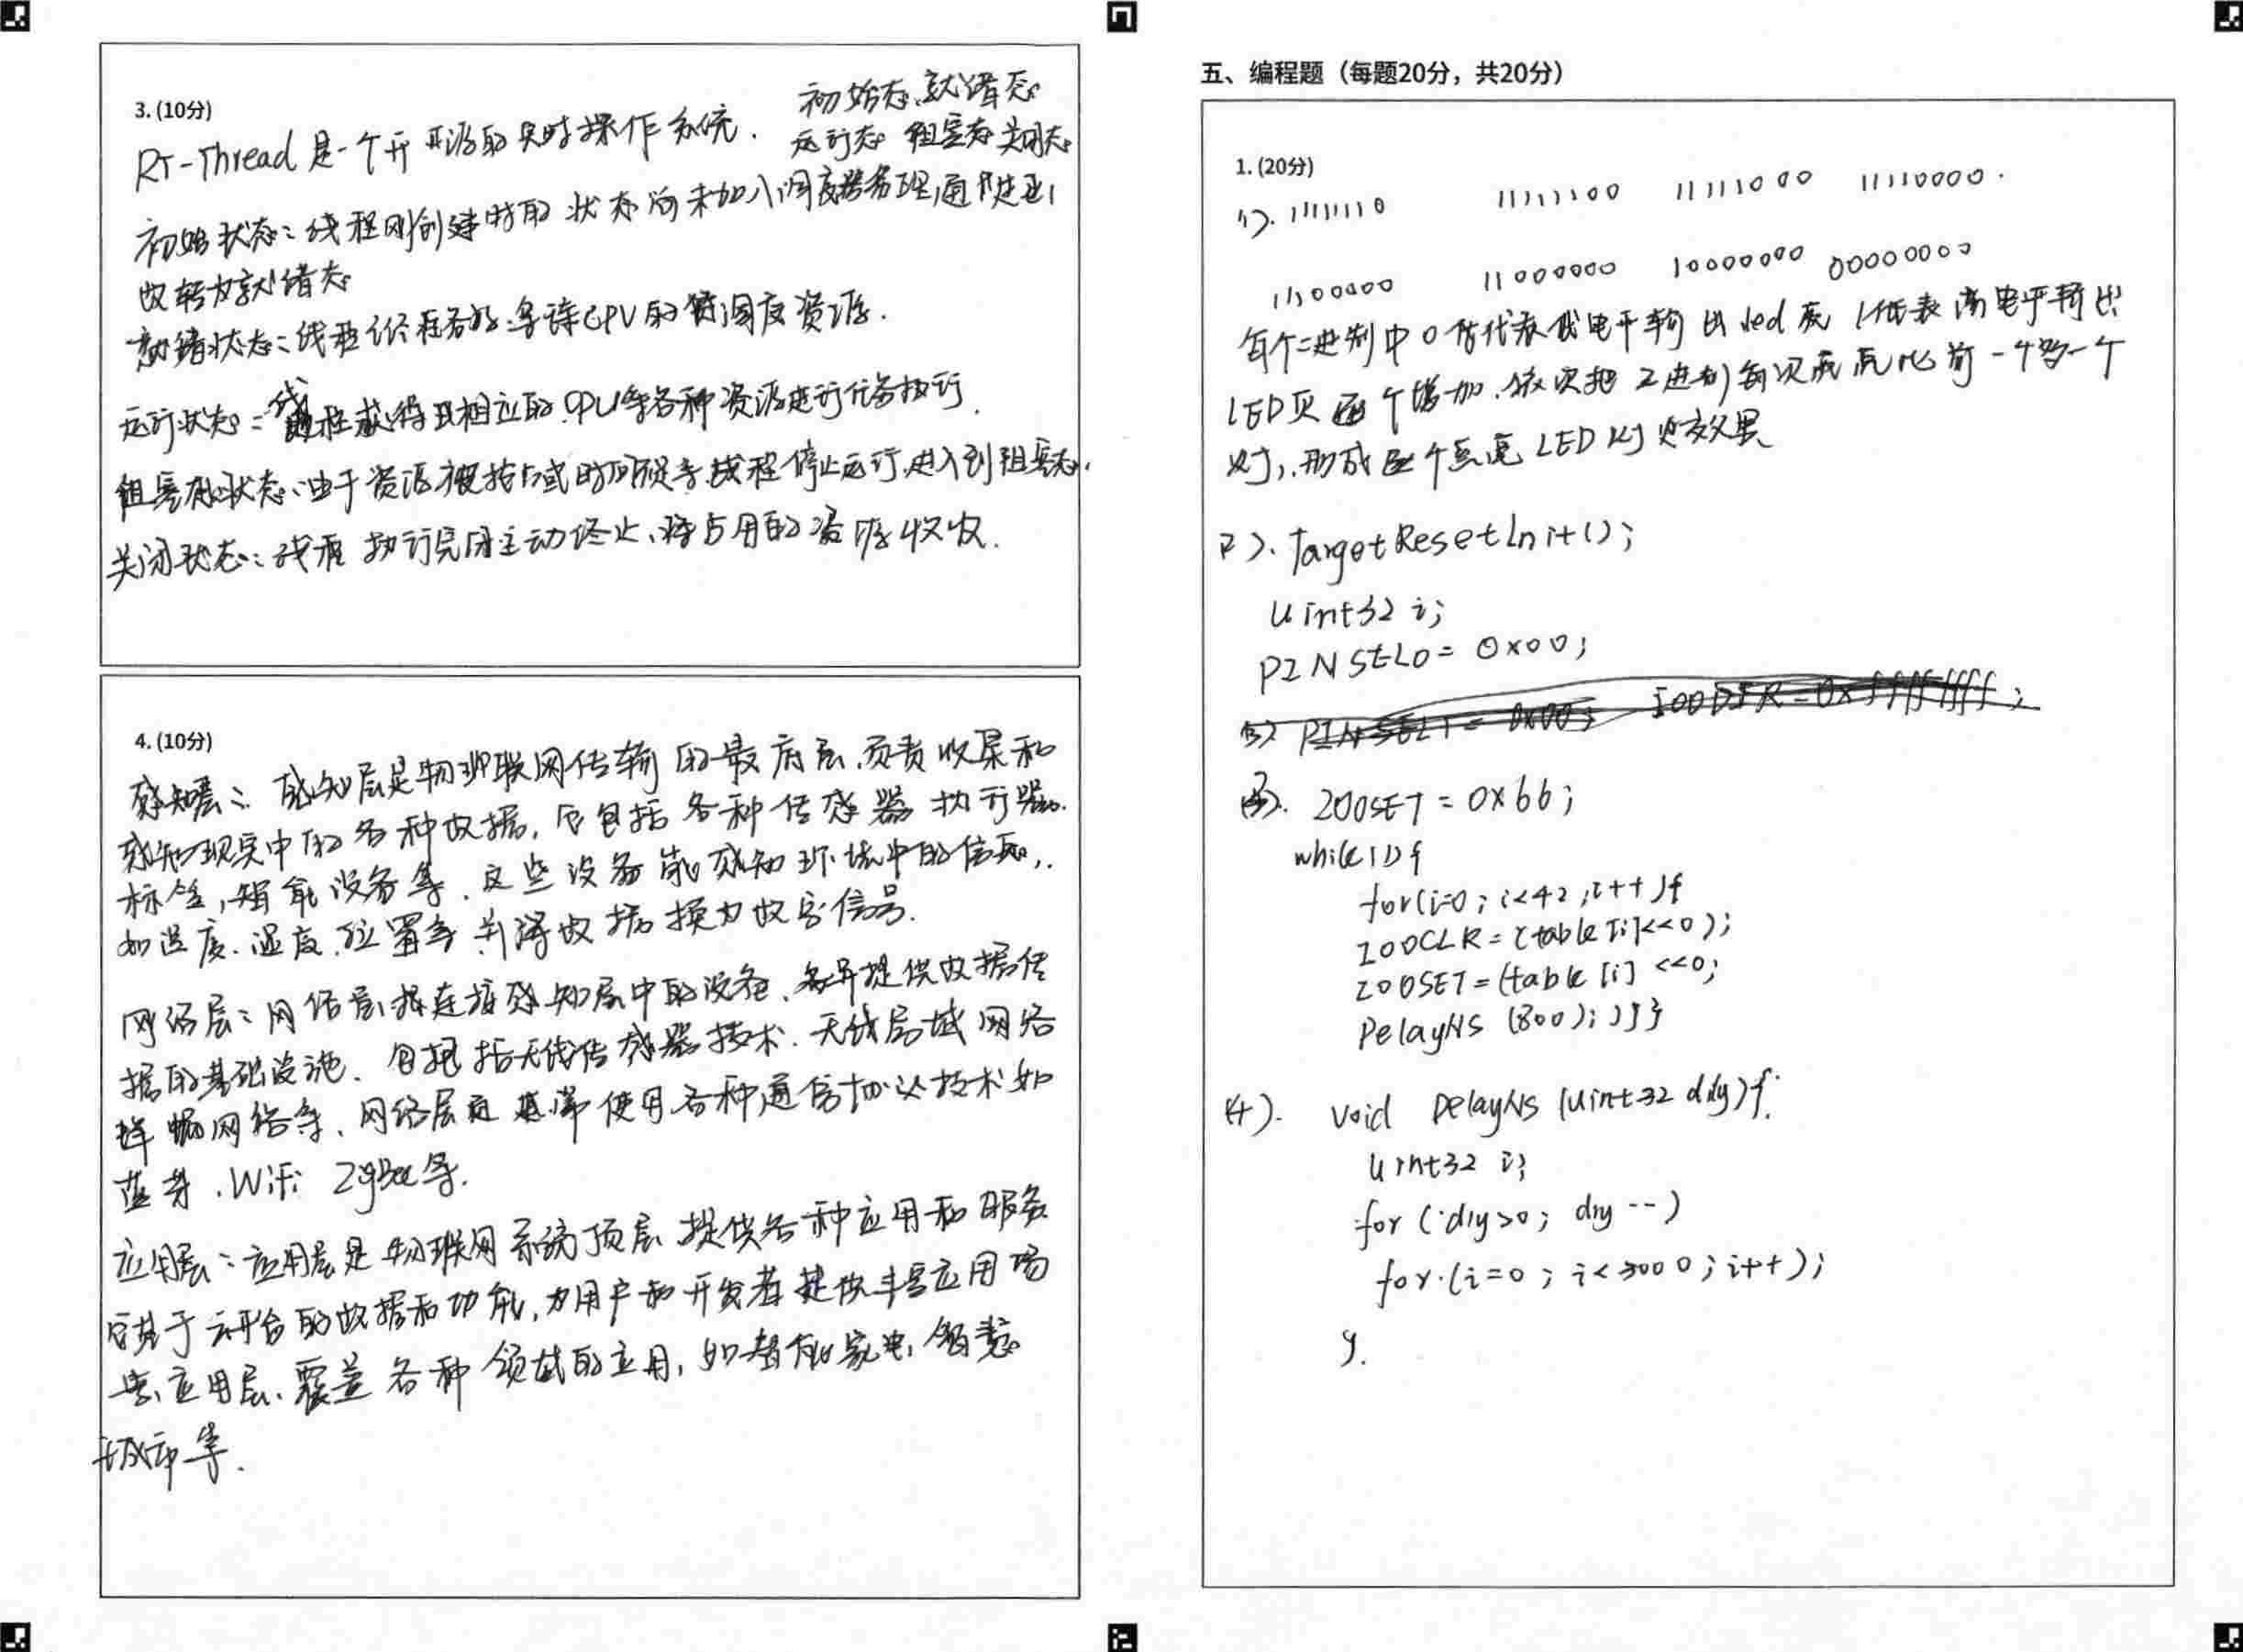 3. (10分)
RT-Thread 是一个开源的实时操作系统.
初始态、就绪态
运行态 阻塞态 关闭态
初始状态:线程刚创建时的状态尚未加入调度器管理通过
改转为就绪态
就绪状态:线程已经准备好,等待CPU的调度资源.
运行状态:线程获得且相应的CPU等各种资源进行任务执行.
阻塞状态:由于资源被抢占或时间 线程停止运行,进入到阻塞态.
关闭状态:线程执行完 主动终止,将占用的资源收收.
4. (10分)
感知层:感知层是物联网传输的最底层,负责收集和
感知现实中的各种数据,它包括各种传感器 执行器.
标签,智能设备等.这些设备能感知环境中的信息,
如温度.湿度.位置等并将数据换为数字信号.
网络层:网络层 连接感知层中的设备、并提供数据传
据的基础设施、包括无线传感器技术.无线局域网络
蜂窝网络等、网络层通常使用各种通信协议技术如
蓝牙.Wifi Zigbee等.
应用层:应用层是物联网系统顶层 提供各种应用和服务
它基于云平台的数据和功能,为用户和开发者提供丰富应用场
景,应用层、覆盖各种领域的应用,如智能家电,智慧
城市等.
五、编程题（每题20分，共20分）
1. (20分)
1). 11111110 11111100 11111000 11110000.
11100000 11000000 10000000 00000000
每个二进制中0皆代表低电平输出led亮 1代表高电平输出
LED灭 逐个增加.依次把2进制每次 亮比前一个多一个
时,形成逐个点亮LED灯的效果
2). TargetResetInit();
uint32 i;
PINSEL0 = 0x00;
3). IO0SET = 0x66;
while(1){
for(i=0; i<42; i++){
IO0CLR = (table[i]<<0);
IO0SET = (table[i] <<0;
DelayNS (800); }}}
(4). void DelayNS (uint32 dly){
uint32 i;
for (; dly>0; dly--)
for (i=0; i<5000; i++);
}.